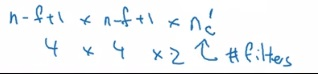 n-f+1 × n-f+1 × n'c
4 × 4 × 2 ↑ #filters